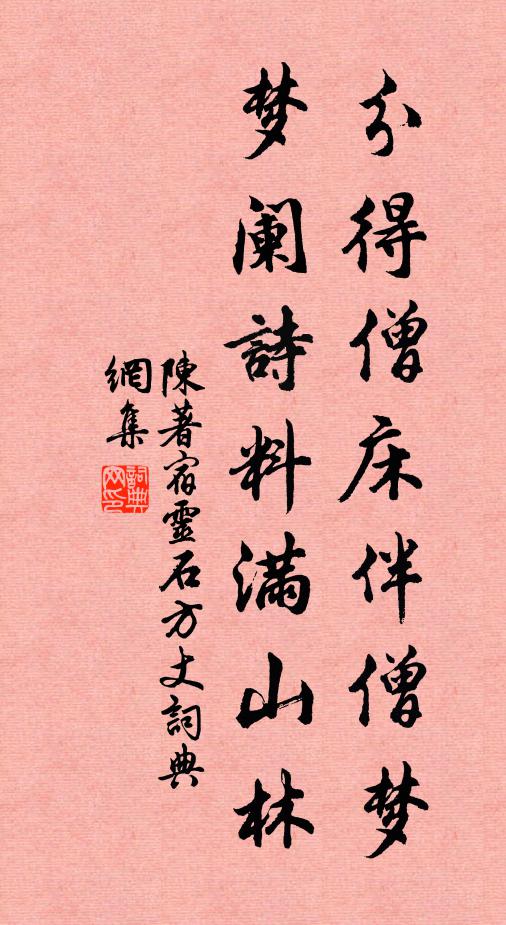 分得僧床伴僧梦
梦阑詩料满山林
陳著宿靈石方丈詞典
網集
詞典网印